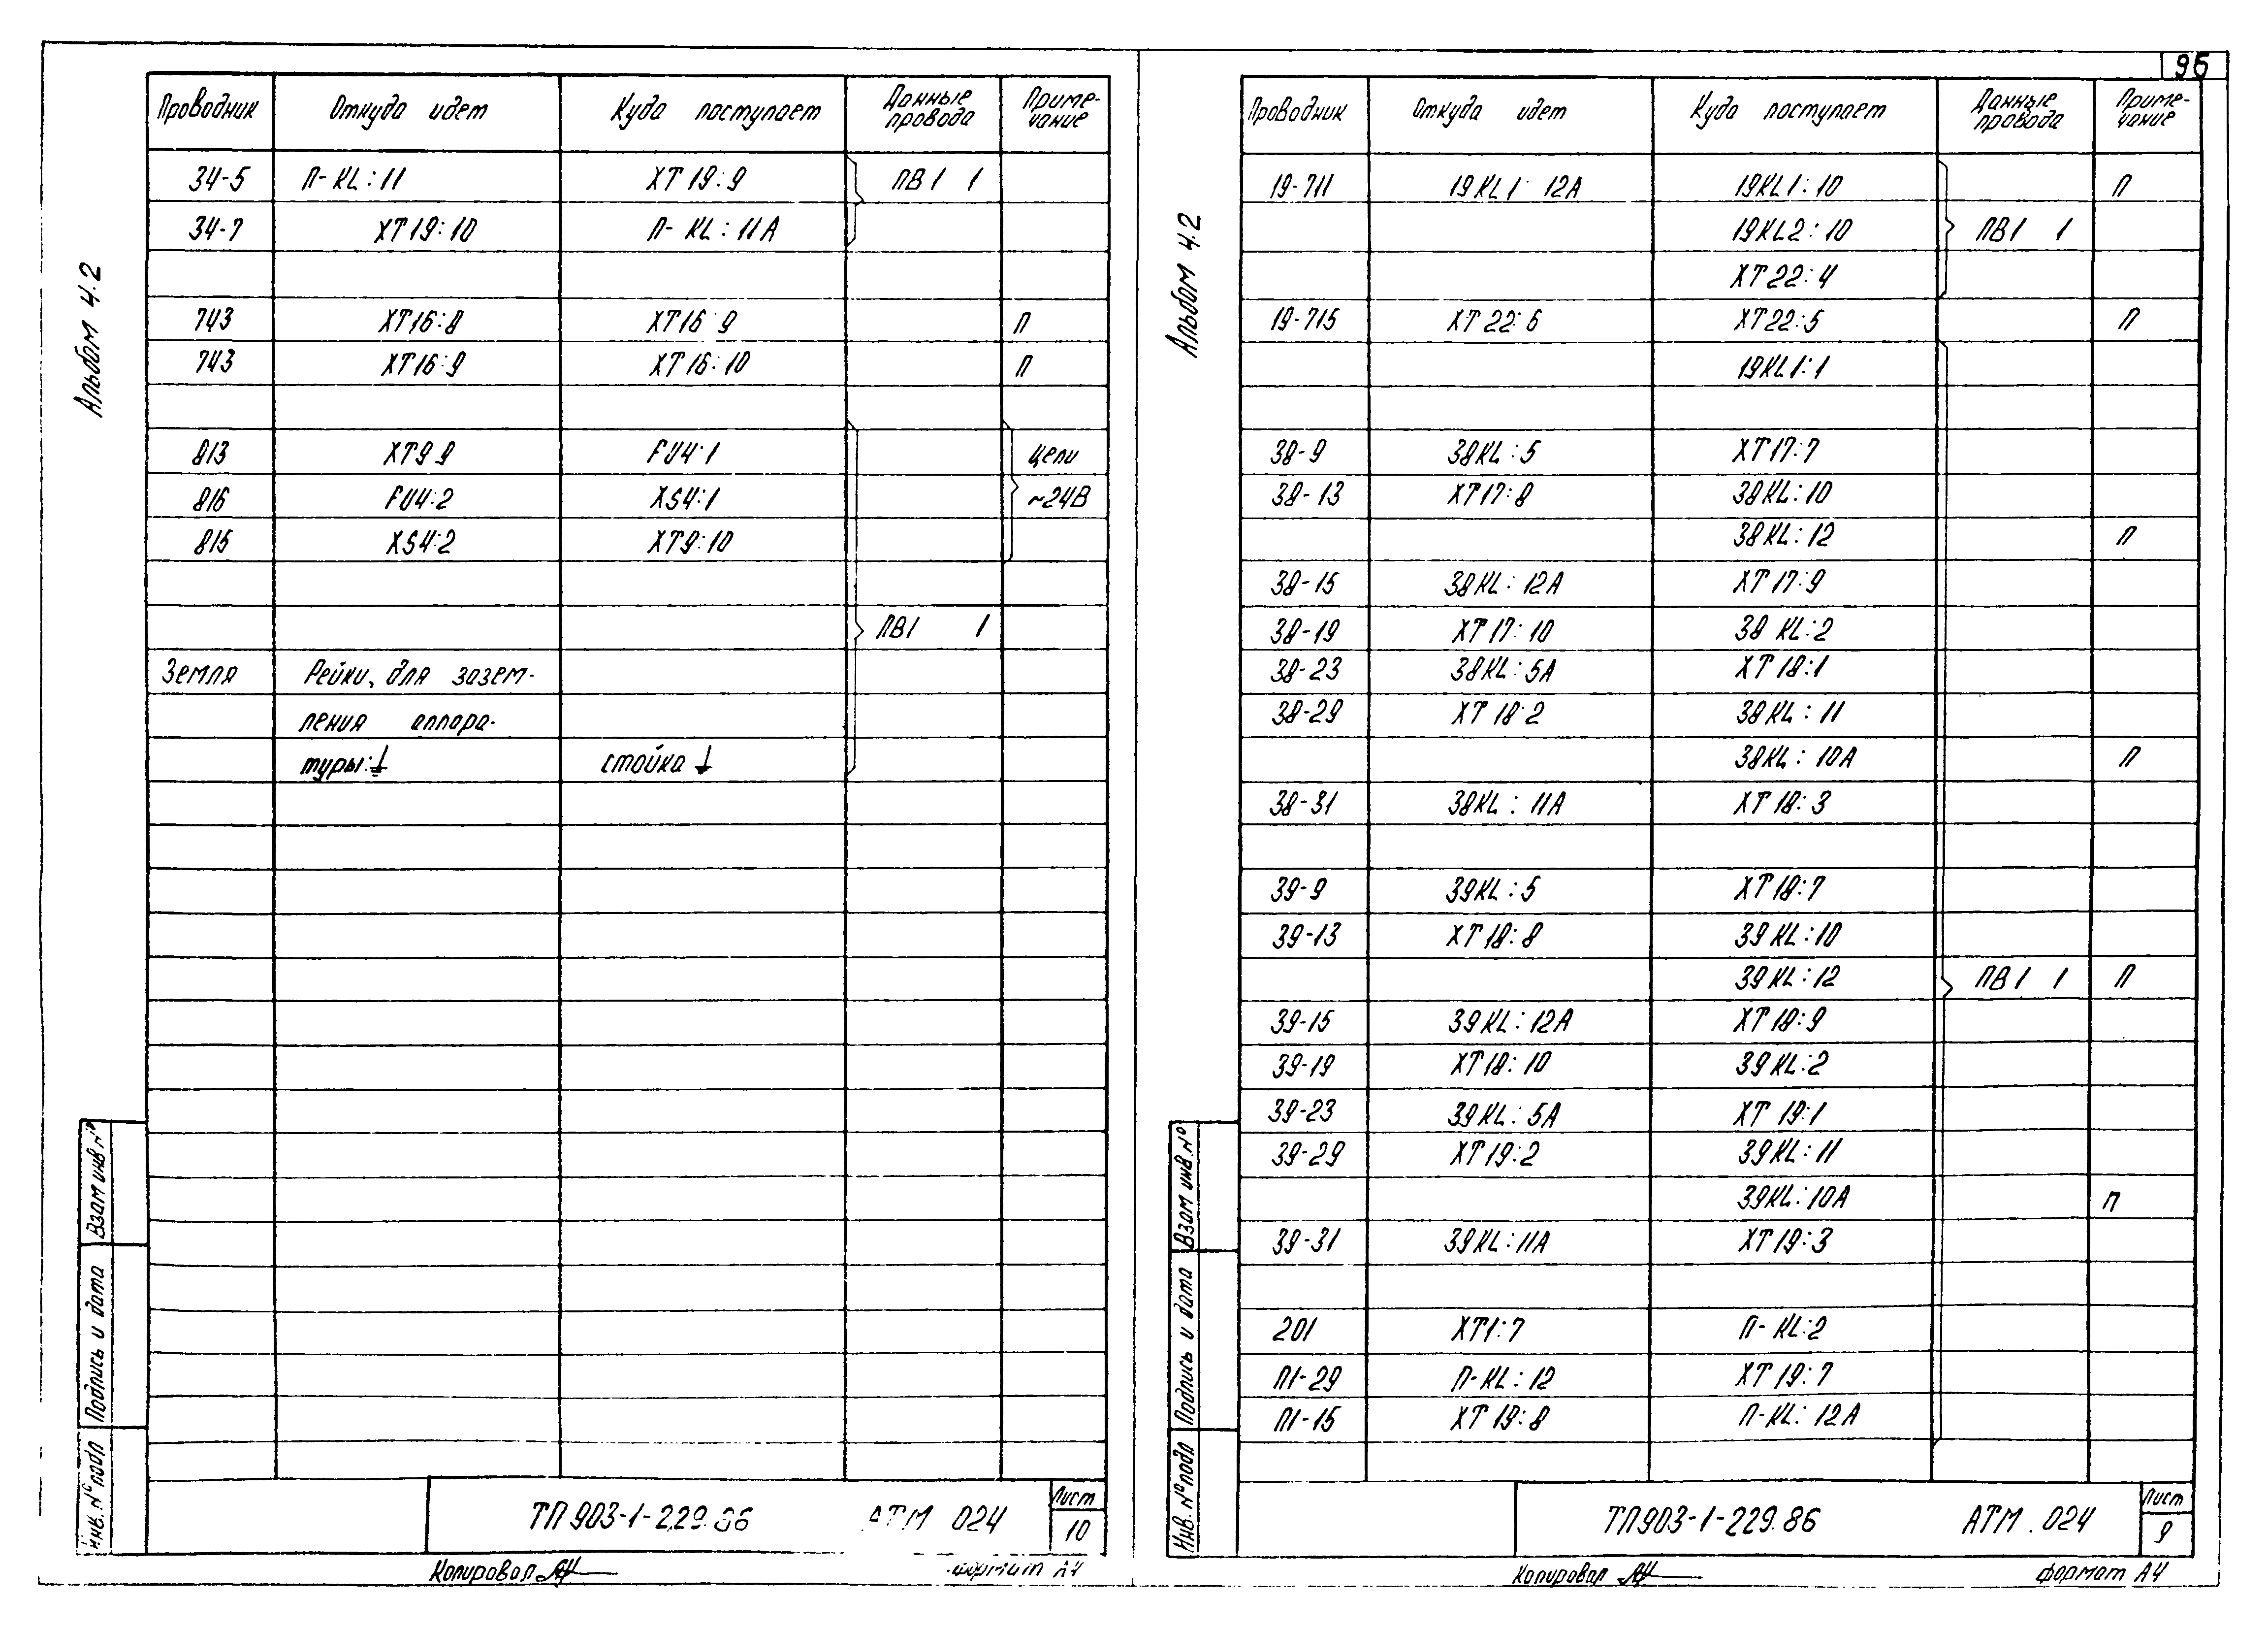 96
Альбом 4.2
Проводник Откуда идет Куда поступает Данные провода Примечание
34-5 П-KL:11 XT19:9 ПВ1 1
34-7 XT19:10 П-KL:11А
743 XT16:8 XT16:9 П
743 XT16:9 XT16:10 П
813 XT9:9 FU4:1 цепи
816 FU4:2 XS4:1 ~24В
815 XS4:2 XT9:10
ПВ1 1
Земля Рейки, для зазем-
ления аппара-
туры:⏚ стойка ⏚
Взам инв №
Подпись и дата
Инв. № подл
ТП903-1-229.86 АТМ 024
Лист
10
Копировал
формат А4
Альбом 4.2
Проводник Откуда идет Куда поступает Данные провода Примечание
19-711 19KL1:12А 19KL1:10 П
19KL2:10 ПВ1 1
XT22:4
19-715 XT22:6 XT22:5 П
19KL1:1
38-9 38KL:5 XT17:7
38-13 XT17:8 38KL:10
38KL:12 П
38-15 38KL:12А XT17:9
38-19 XT17:10 38KL:2
38-23 38KL:5А XT18:1
38-29 XT18:2 38KL:11
38KL:10А П
38-31 38KL:11А XT18:3
39-9 39KL:5 XT18:7
39-13 XT18:8 39KL:10
39KL:12 ПВ1 1 П
39-15 39KL:12А XT18:9
39-19 XT18:10 39KL:2
39-23 39KL:5А XT19:1
39-29 XT19:2 39KL:11
39KL:10А П
39-31 39KL:11А XT19:3
201 XT1:7 П-KL:2
П1-29 П-KL:12 XT19:7
П1-15 XT19:8 П-KL:12А
Взам инв. №
Подпись и дата
Инв. № подл
ТП903-1-229.86 АТМ.024
Лист
9
Копировал
формат А4